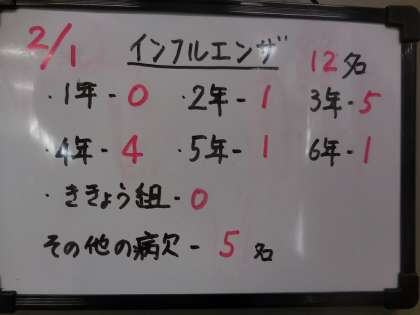 2/1 インフルエンザ 12名
・1年-0 ・2年-1 3年-5
・4年-4 ・5年-1 6年-1
・ききょう組-0
その他の病欠-5名